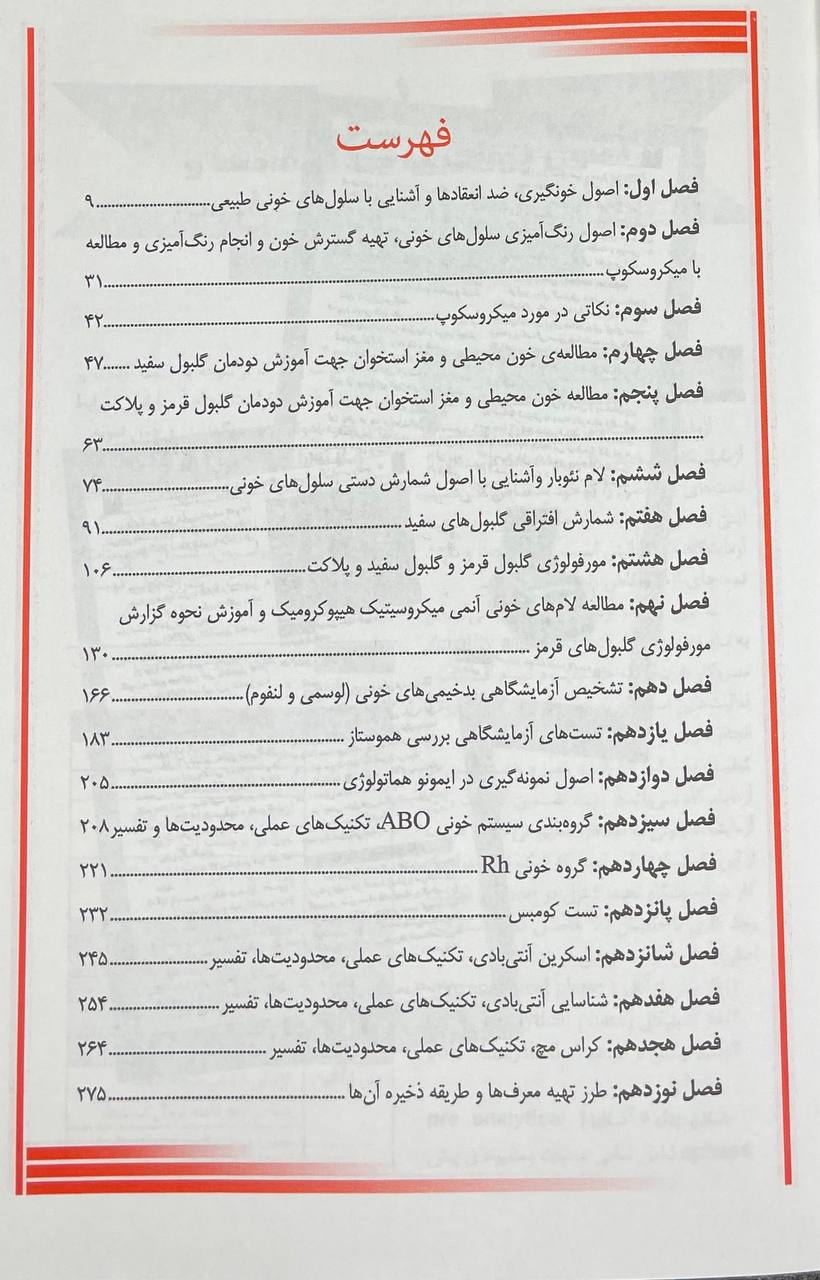 فهرست
فصل اول: اصول خونگیری، ضد انعقادها و آشنایی با سلول‌های خونی طبیعی..............................۹
فصل دوم: اصول رنگ‌آمیزی سلول‌های خونی، تهیه گسترش خون و انجام رنگ‌آمیزی و مطالعه
با میکروسکوپ..............................۳۱
فصل سوم: نکاتی در مورد میکروسکوپ..............................۴۲
فصل چهارم: مطالعه‌ی خون محیطی و مغز استخوان جهت آموزش دودمان گلبول سفید .......۴۷
فصل پنجم: مطالعه خون محیطی و مغز استخوان جهت آموزش دودمان گلبول قرمز و پلاکت
..............................۶۳
فصل ششم: لام نئوبار وآشنایی با اصول شمارش دستی سلول‌های خونی..............................۷۴
فصل هفتم: شمارش افتراقی گلبول‌های سفید ..............................۹۱
فصل هشتم: مورفولوژی گلبول قرمز و گلبول سفید و پلاکت..............................۱۰۶
فصل نهم: مطالعه لام‌های خونی آنمی میکروسیتیک هیپوکرومیک و آموزش نحوه گزارش
مورفولوژی گلبول‌های قرمز ..............................۱۳۰
فصل دهم: تشخیص آزمایشگاهی بدخیمی‌های خونی (لوسمی و لنفوم)..............................۱۶۶
فصل یازدهم: تست‌های آزمایشگاهی بررسی هموستاز ..............................۱۸۳
فصل دوازدهم: اصول نمونه‌گیری در ایمونو هماتولوژی..............................۲۰۵
فصل سیزدهم: گروه‌بندی سیستم خونی ABO، تکنیک‌های عملی، محدودیت‌ها و تفسیر۲۰۸
فصل چهاردهم: گروه خونی Rh ..............................۲۲۱
فصل پانزدهم: تست کومبس ..............................۲۳۲
فصل شانزدهم: اسکرین آنتی‌بادی، تکنیک‌های عملی، محدودیت‌ها، تفسیر..............................۲۴۵
فصل هفدهم: شناسایی آنتی‌بادی، تکنیک‌های عملی، محدودیت‌ها، تفسیر ..............................۲۵۴
فصل هجدهم: کراس مچ، تکنیک‌های عملی، محدودیت‌ها، تفسیر ..............................۲۶۴
فصل نوزدهم: طرز تهیه معرف‌ها و طریقه ذخیره آن‌ها ..............................۲۷۵